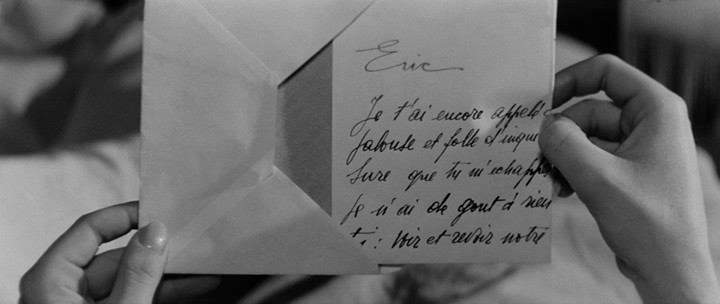 Eric
Je t'ai encore appelé
jalouse et folle d'inqu
Sure que tu m'échappe
Je n'ai de gout à rien
ti : Voir et revoir notre